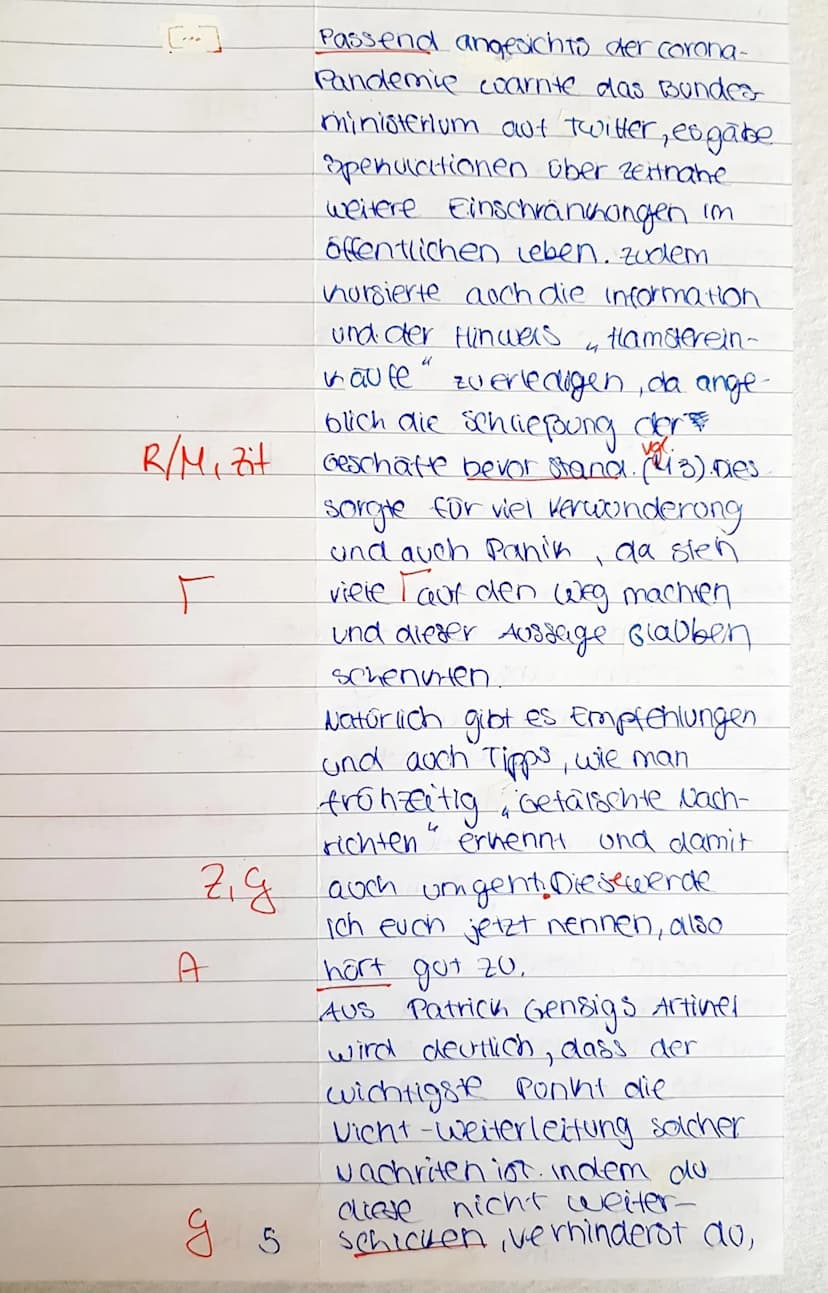 [...] Passend angesichts der Corona-
Pandemie warnte das Bundes-
ministerium auf Twitter, es gäbe
Spekulationen über zeitnahe
weitere Einschränkungen im
öffentlichen Leben. Zudem
kursierte auch die Information
und der Hinweis „Hamsterein-
käufe“ zu erledigen, da ange-
blich die Schließung der
R/M, Zit Geschäfte bevor stand. (vgl. M3). Dies
sorgte für viel Verwunderung
und auch Panik, da sich
Γ viele Γ auf den Weg machen
und dieser Aussage Glauben
schenkten.
Natürlich gibt es Empfehlungen
und auch Tipps, wie man
frühzeitig „Gefälschte Nach-
richten“ erkennt und damit
Z, G auch umgeht. Diese werde
ich euch jetzt nennen, also
A hört gut zu.
Aus Patrick Gensigs Artikel
wird deutlich, dass der
wichtigste Punkt die
Nicht-Weiterleitung solcher
Nachriten ist. Indem du
diese nicht weiter-
G 5 schicken, verhinderst du,